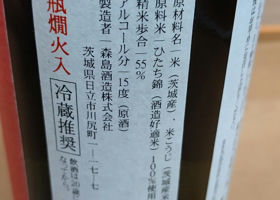 原材料名 米(茨城産)、米こうじ(茨城産米
原料米 ひたち錦(酒造好適米)100%使用
精米歩合 55%
アルコール分 15度(原酒)
製造者 森島酒造株式会社
茨城県日立市川尻町1-17-7
瓶燗火入
冷蔵推奨
飲酒は20歳に